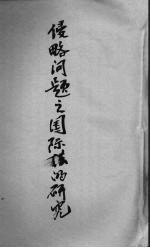 侵略问题之国际法的研究